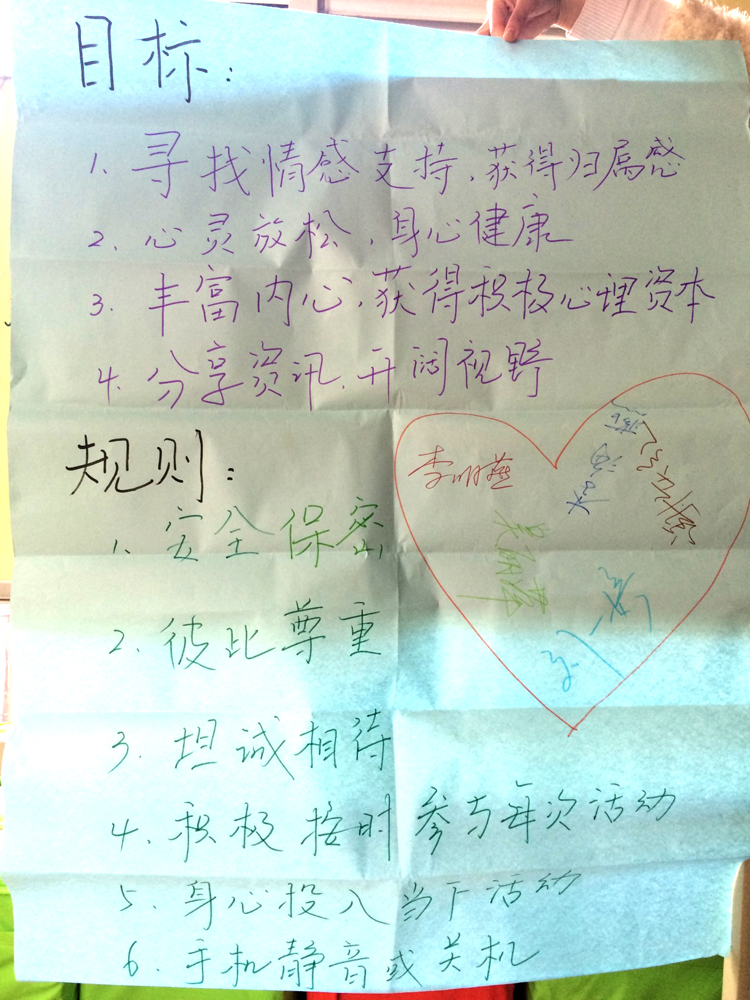 目标：
1. 寻找情感支持，获得归属感
2. 心灵放松，身心健康
3. 丰富内心，获得积极心理资本
4. 分享资讯，开阔视野
规则：
1. 安全保密
2. 彼此尊重
3. 坦诚相待
4. 积极按时参与每次活动
5. 身心投入当下活动
6. 手机静音或关机
李明燕